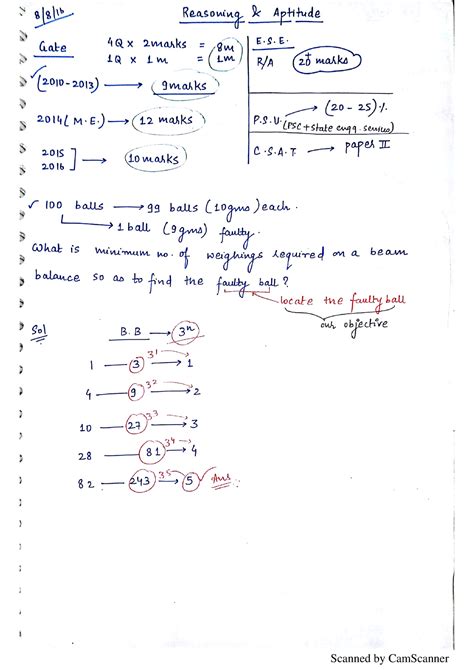 8/8/16
Reasoning & Aptitude
Gate
4Q x 2marks = 8m
1Q x 1m = 1m
(2010-2013) → 9marks
2014(M.E.) → 12 marks
2015
2016 ] → 10marks
E.S.E.
R/A 20+ marks
→ (20-25)%
P.S.U. (PSC + State engg. services)
C.S.A.T → paper II
✓ 100 balls → 99 balls (10gms) each.
→ 1 ball (9gms) faulty.
What is minimum no. of weighings required on a beam
balance so as to find the faulty ball?
locate the faulty ball
our objective
Sol
B.B → 3ⁿ
1 — 3 3¹ → 1
4 — 9 3² → 2
10 — 27 3³ → 3
28 — 81 3⁴ → 4
82 — 243 3⁵ → 5 ✓ Ans
Scanned by CamScanner